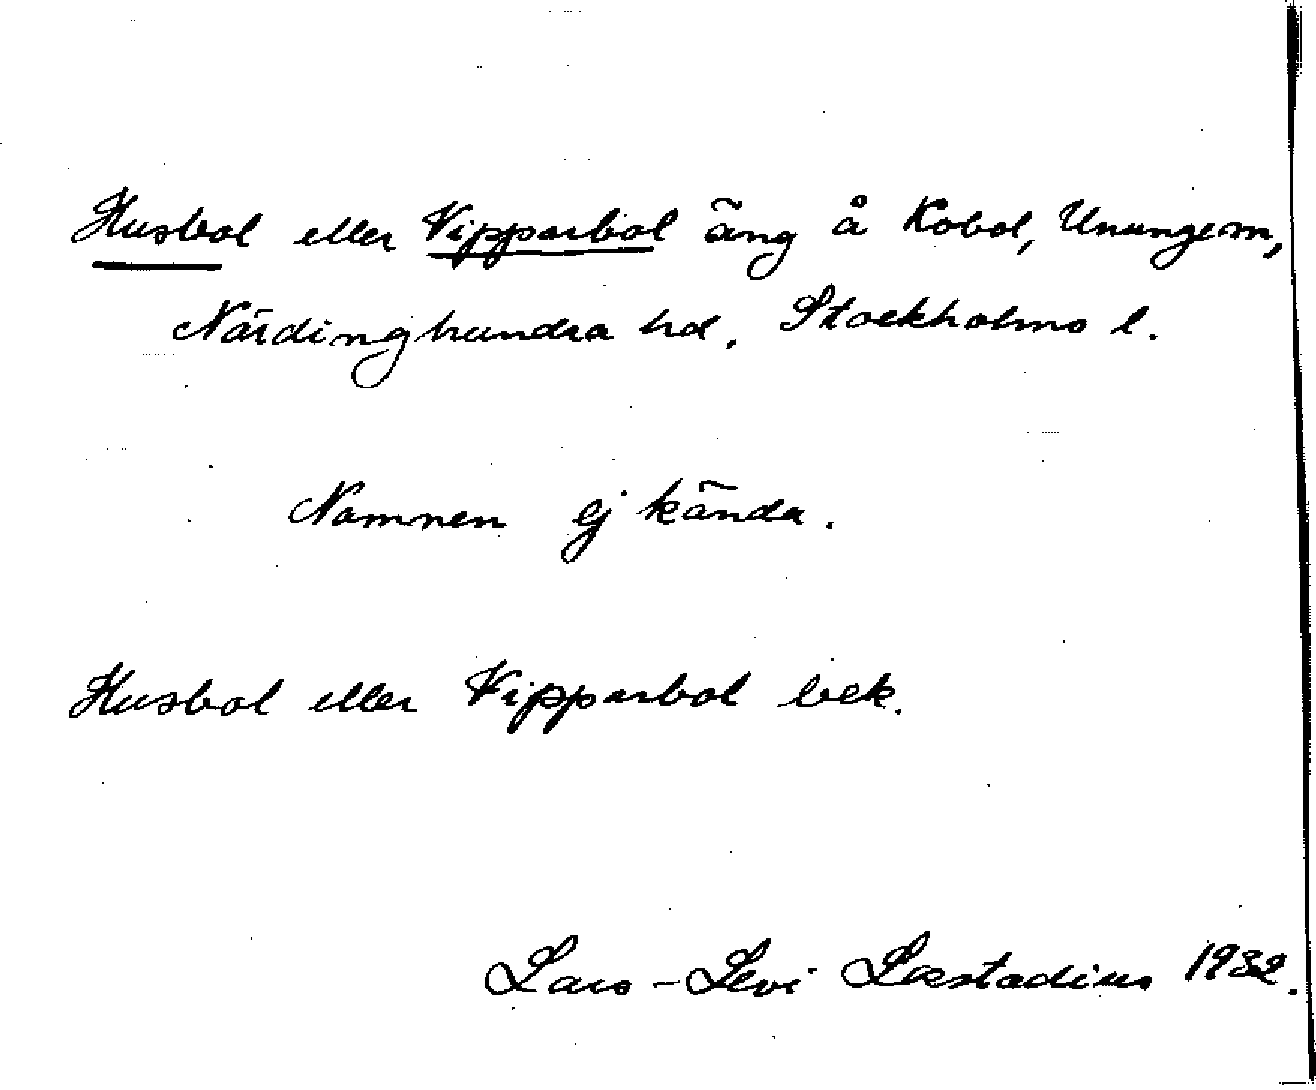 Husbol eller Vipparbol äng å Kobol, Ununge sn,
Närdinghundra hd, Stockholms l.
Namnen ej kända.
Husbol eller Vipparbol bek.
Lars-Levi Læstadius 1932.